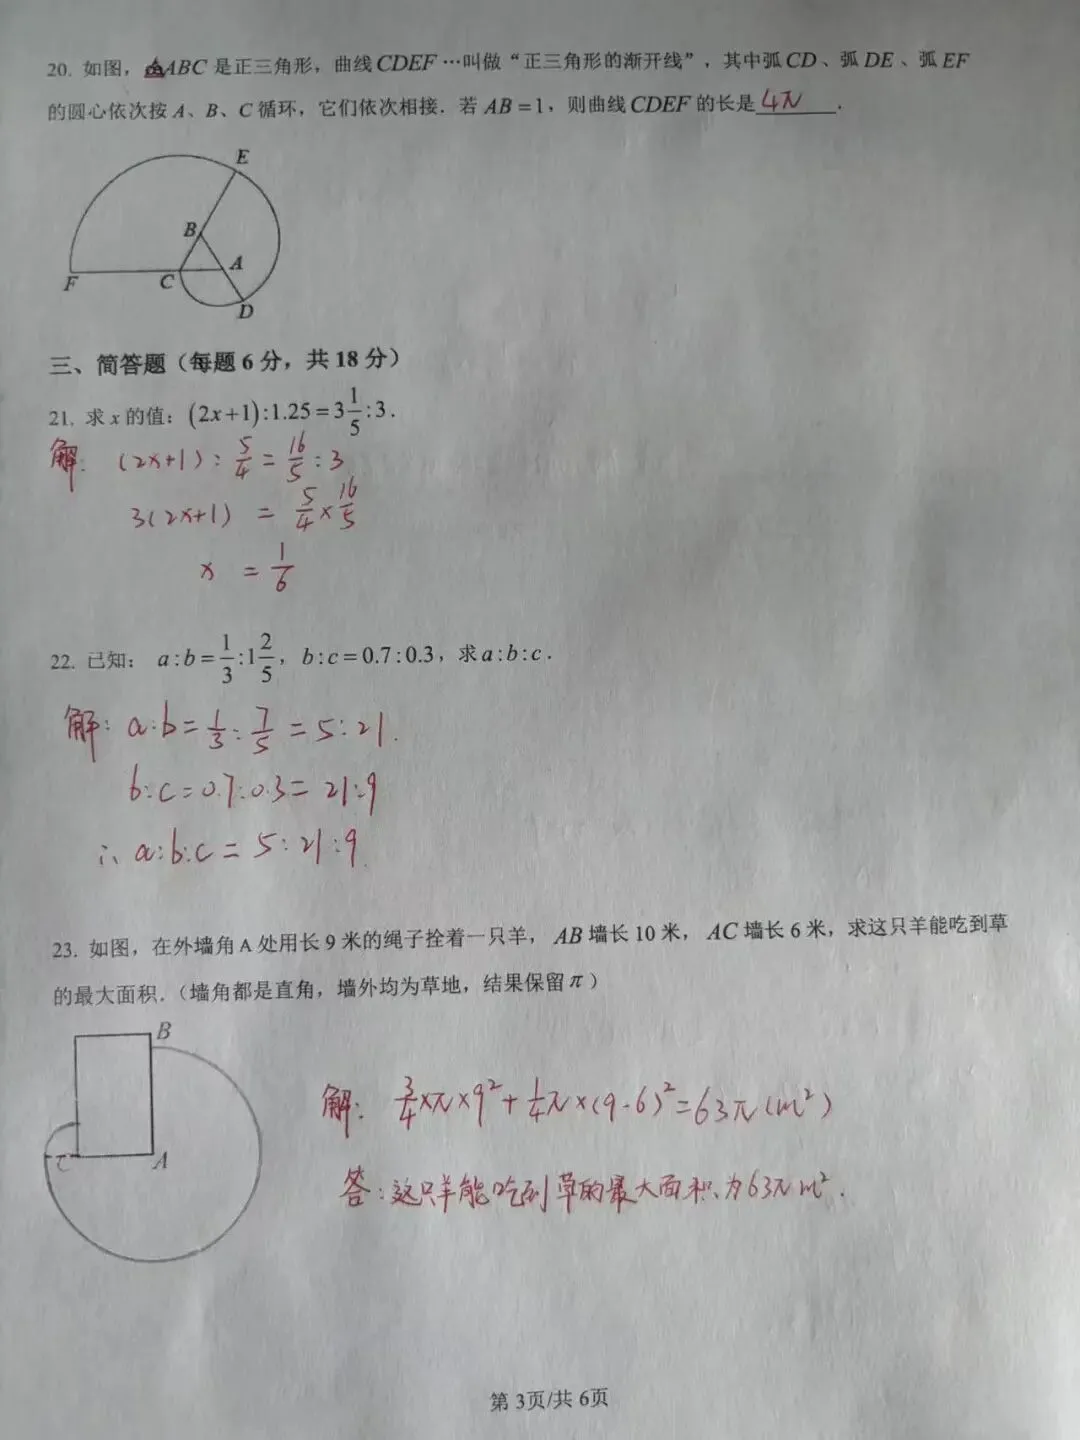 20. 如图，△ABC 是正三角形，曲线 CDEF …叫做“正三角形的渐开线”，其中弧 CD 、弧 DE 、弧 EF
的圆心依次按 A、B、C 循环，它们依次相接．若 AB =1，则曲线 CDEF 的长是 4π ．
E
B
A
F
C
D
三、简答题（每题 6 分，共 18 分）
21. 求 x 的值：(2x+1):1.25=3 1/5 :3．
解：(2x+1) : 5/4 = 16/5 : 3
3(2x+1) = 5/4 × 16/5
x = 1/6
22. 已知： a:b= 1/3 :1 2/5 ，b:c=0.7:0.3，求 a:b:c．
解：a:b= 1/3 : 7/5 = 5:21.
b:c=0.7:0.3= 21:9
∴ a:b:c = 5:21:9.
23. 如图，在外墙角 A 处用长 9 米的绳子拴着一只羊， AB 墙长 10 米， AC 墙长 6 米，求这只羊能吃到草
的最大面积．（墙角都是直角，墙外均为草地，结果保留 π ）
B
C
A
解： 3/4 ×π×9² + 1/4 π×(9-6)² =63π(m²)
答：这只羊能吃到草的最大面积为63πm².
第 3页/共 6页